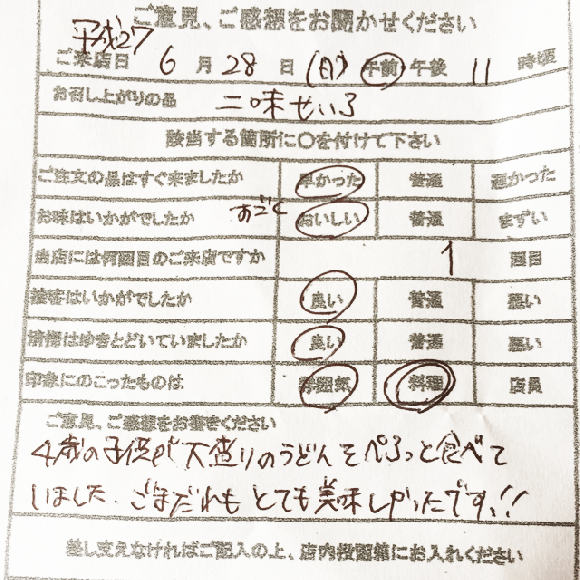 ご意見、ご感想をお聞かせください
平成27
ご来店日 6 月 28 日 (日) 午前 午後 11 時頃
お召し上がりの品 二味せいろ
該当する箇所に○を付けて下さい
ご注文の品はすぐ来ましたか 早かった 普通 遅かった
お味はいかがでしたか すごく おいしい 普通 まずい
当店には何回目のご来店ですか 1 回目
接客はいかがでしたか 良い 普通 悪い
清掃はゆきとどいていましたか 良い 普通 悪い
印象にのこったものは 雰囲気 料理 店員
ご意見、ご感想をお書きください
4歳の子供が大盛りのうどんをぺろっと食べて
しまいました。ごまだれもとても美味しかったです!!
差し支えなければご記入の上、店内投函箱にお入れください